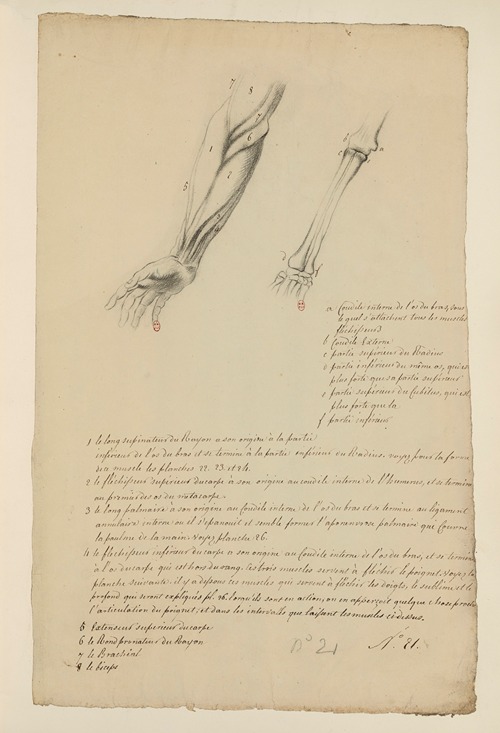 7
8
7
6
1
2
5
b
a
c
e
a Condile interne de l'os du bras, sous
lequel s'attachent tous les muscles
flechisseurs
b Condile Externe
c partie superieur du Radius
d partie inferieur du même os, qui est
plus forte que sa partie superieur
e partie superieur du Cubitus, qui est
plus forte que la
f partie inferieur
1 le long supinateur du Rayon a son origine à la partie
inferieur de l'os du bras et se termine à la partie inferieur du Radius. voyez pour la forme
de ce muscle les planches 22. 23. et 24.
2 le fléchisseur superieur du carpe à son origine au condile interne de l'Humerus, et se termine
au premier des os du métacarpe.
3 le long palmaire à son origine au Condile interne de l'os du bras et se termine au ligament
annulaire interne ou il s'epanouit et semble former l'aponevrose palmaire qui Couvre
la paulme de la main. voyez planche 26.
4 le flechisseur inferieur du carpe a son origine au Condile interne de l'os du bras, et se termine
à l'os du carpe qui est hors du rang. les trois muscles servent à flechir le poignet. Voyez la
planche suivante. il y a dessous ces muscles qui servent à flechir les doigts, le sublime et le
profond qui seront expliqués pl. 26. lorsqu'ils sont en action, on en apperçoit quelque chose proche
l'articulation du poignet, et dans les intervalles que laissent les muscles ci dessus.
5 Extenseur superieur du carpe
6 le Rond pronateur du Rayon
7 le Brachial
8 le biceps
N° 21
N° 21.